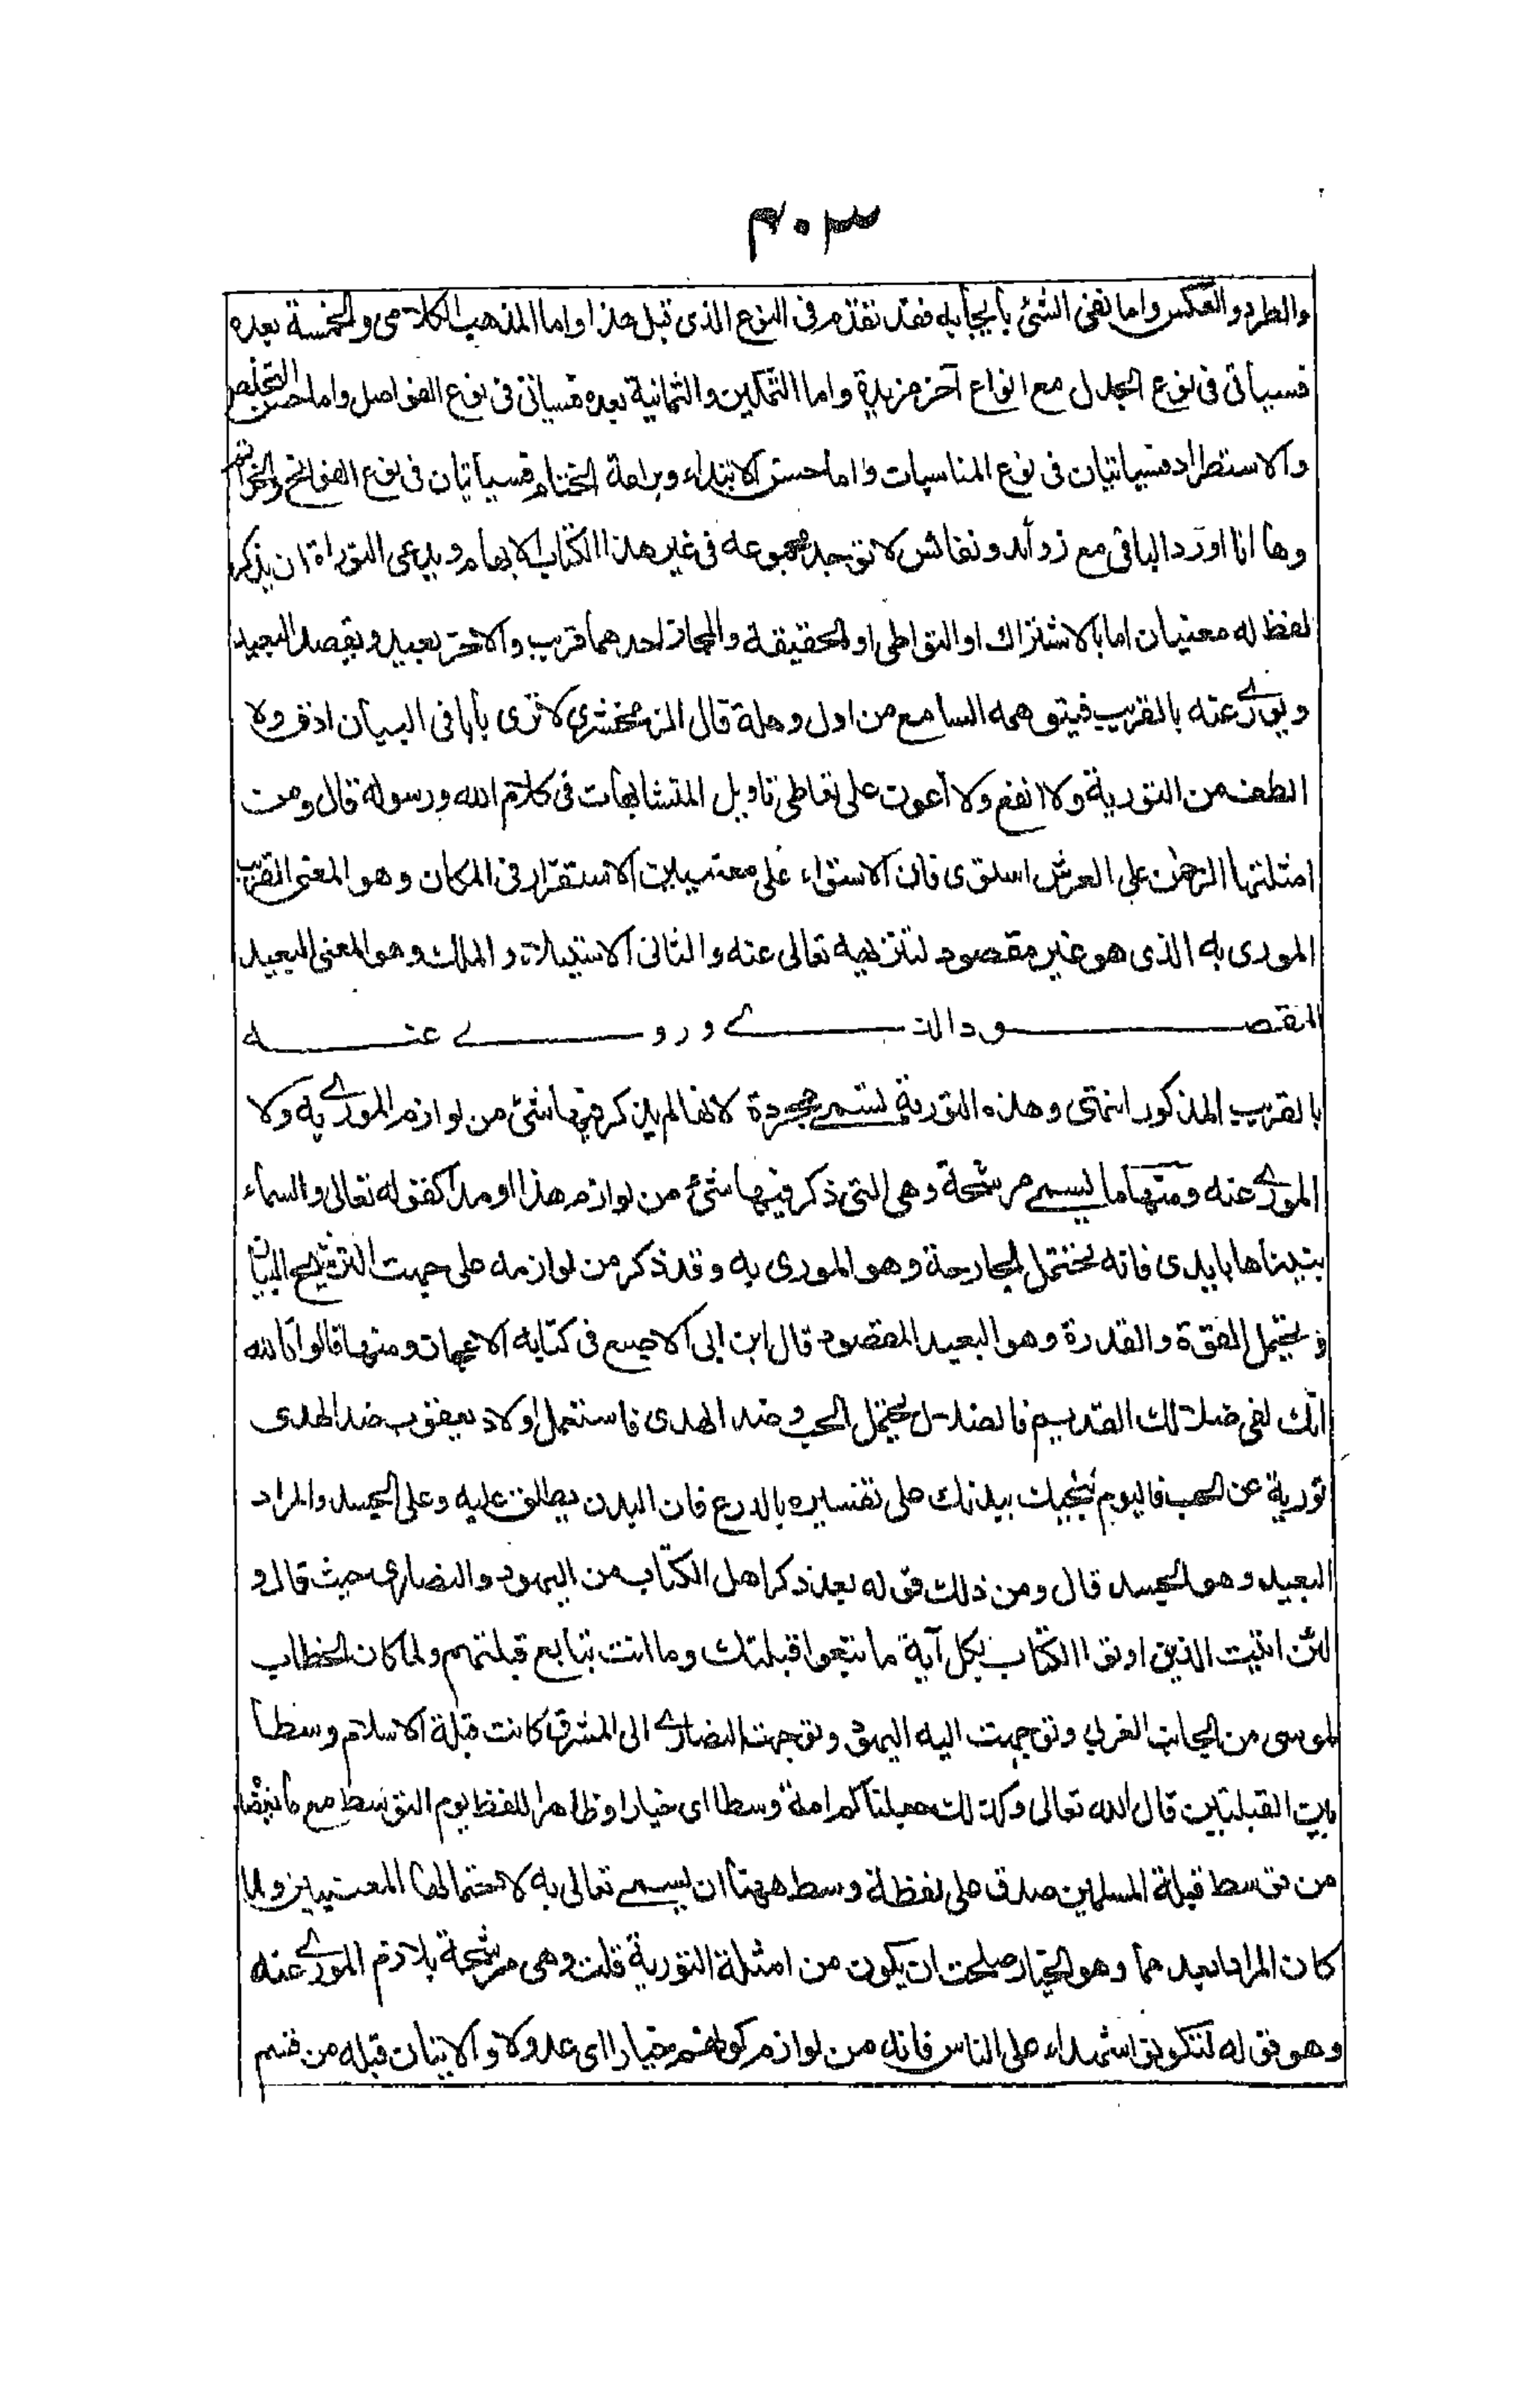 ٣٠٣
والطرد والعكس واما نفى الشئ بايجابه فقد تقدم فى النوع الذى قبل هذا واما المذهب الكلامى والخمسة بعده
فسيأتى فى نوع الجدل مع انواع آخر مزيدة واما التمكين والثمانية بعده فسيأتى فى نوع الفواصل واما حسن التخلص
والاستطراد فسياتيان فى نوع المناسبات واما حسن الابتداء وبراعة الختام فسيأتيان فى نوع الفواتح والخواتم
وها انا اورد الباقى مع زوائد ونفائس لا توجد مجموعه فى غير هذا الكتاب الابهام ويدعى التوراة ان يذكر
لفظ له معنيان اما بالاشتراك او التواطى او الحقيقة والمجاز احدهما قريب والآخر بعيد ويقصد البعيد
ويورى عنه بالقريب فيتوهمه السامع من اول وهلة قال الزمخشرى لا ترى بابا فى البيان ادق ولا
الطف من التورية ولا انفع ولا اعون على تعاطى تاويل المتشابهات فى كلام الله ورسوله قال ومن
امثلتها الرحمن على العرش استوى فان الاستواء على معنيين الاستقرار فى المكان وهو المعنى القريب
المورى به الذى هو غير مقصود لتنزيهه تعالى عنه والثانى الاستيلاء والملك وهو المعنى البعيد
المقصود الذى ورى عنه
بالقريب المذكور انتهى وهذه التورية تسمى مجردة لانها لم يذكر فيها شئ من لوازم المورى به ولا
المورى عنه ومنها ما يسمى مرشحة وهى التى ذكر فيها شئ من لوازم هذا او هذا كقوله تعالى والسماء
بنيناها بايدى فانه يحتمل الجارحة وهو المورى به وقد ذكر من لوازمه على جهت الترشيح البنيان
ويحتمل القوة والقدرة وهو البعيد المقصود قال ابن ابى الاصبع فى كتابه الاعجاز ومنها قالوا تالله
انك لفى ضلالك القديم فالضلال يحتمل الحب وضد الهدى فاستعمل اولاد يعقوب ضد الهدى
تورية عن الحب فاليوم ننجيك ببدنك على تفسيره بالدرع فان البدن يطلق عليه وعلى الجسد والمراد
البعيد وهو الجسد قال ومن ذلك قوله بعد ذكر اهل الكتاب من اليهود والنصارى حيث قال و
لئن اتيت الذين اوتوا الكتاب بكل آية ما تبعوا قبلتك وما انت بتابع قبلتهم ولما كان الخطاب
لموسى من الجانب الغربى وتوجهت اليه اليهود وتوجهت النصارى الى المشرق كانت قبلة الاسلام وسطا
بين القبلتين قال الله تعالى وكذلك جعلناكم امة وسطا اى خيارا وظاهر اللفظ يوم التوسط مع ما
من توسط قبلة المسلمين صدق على لفظة وسط ههنا ان يسمى تعالى به لاحتمالها المعنيين ولما
كان المراد ابعدهما وهو الخيار صلحت ان يكون من امثلة التورية قلت وهى مرشحة بلازم المورى عنه
وهو قوله لتكونوا شهداء على الناس فانه من لوازم كونهم خيارا اى عدولا والاتيان قبله من قسم